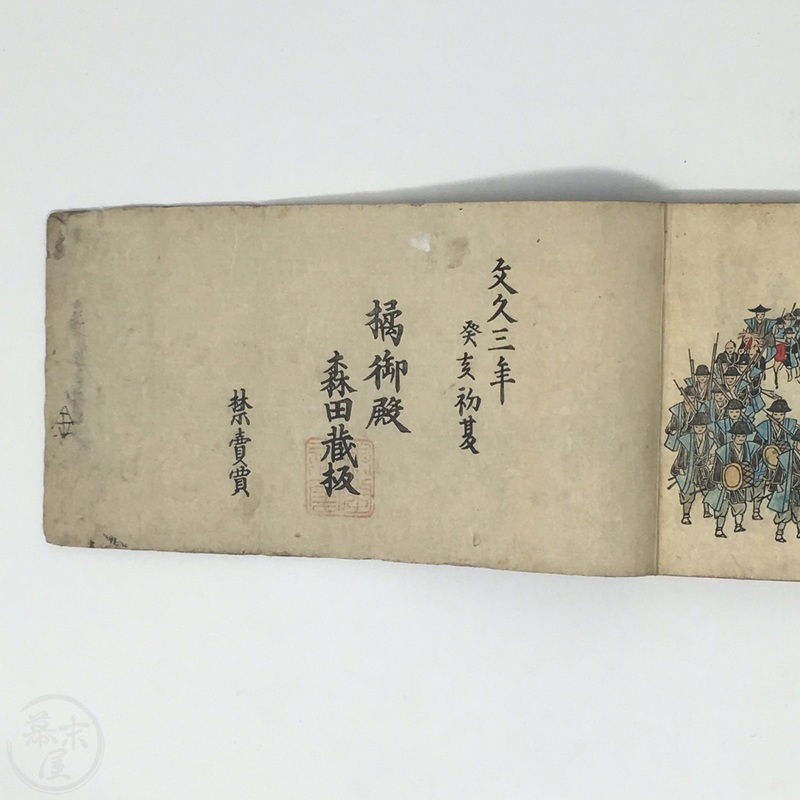 文久三年
癸亥初夏
橘御殿
森田蔵板
禁賣買
幕末屋